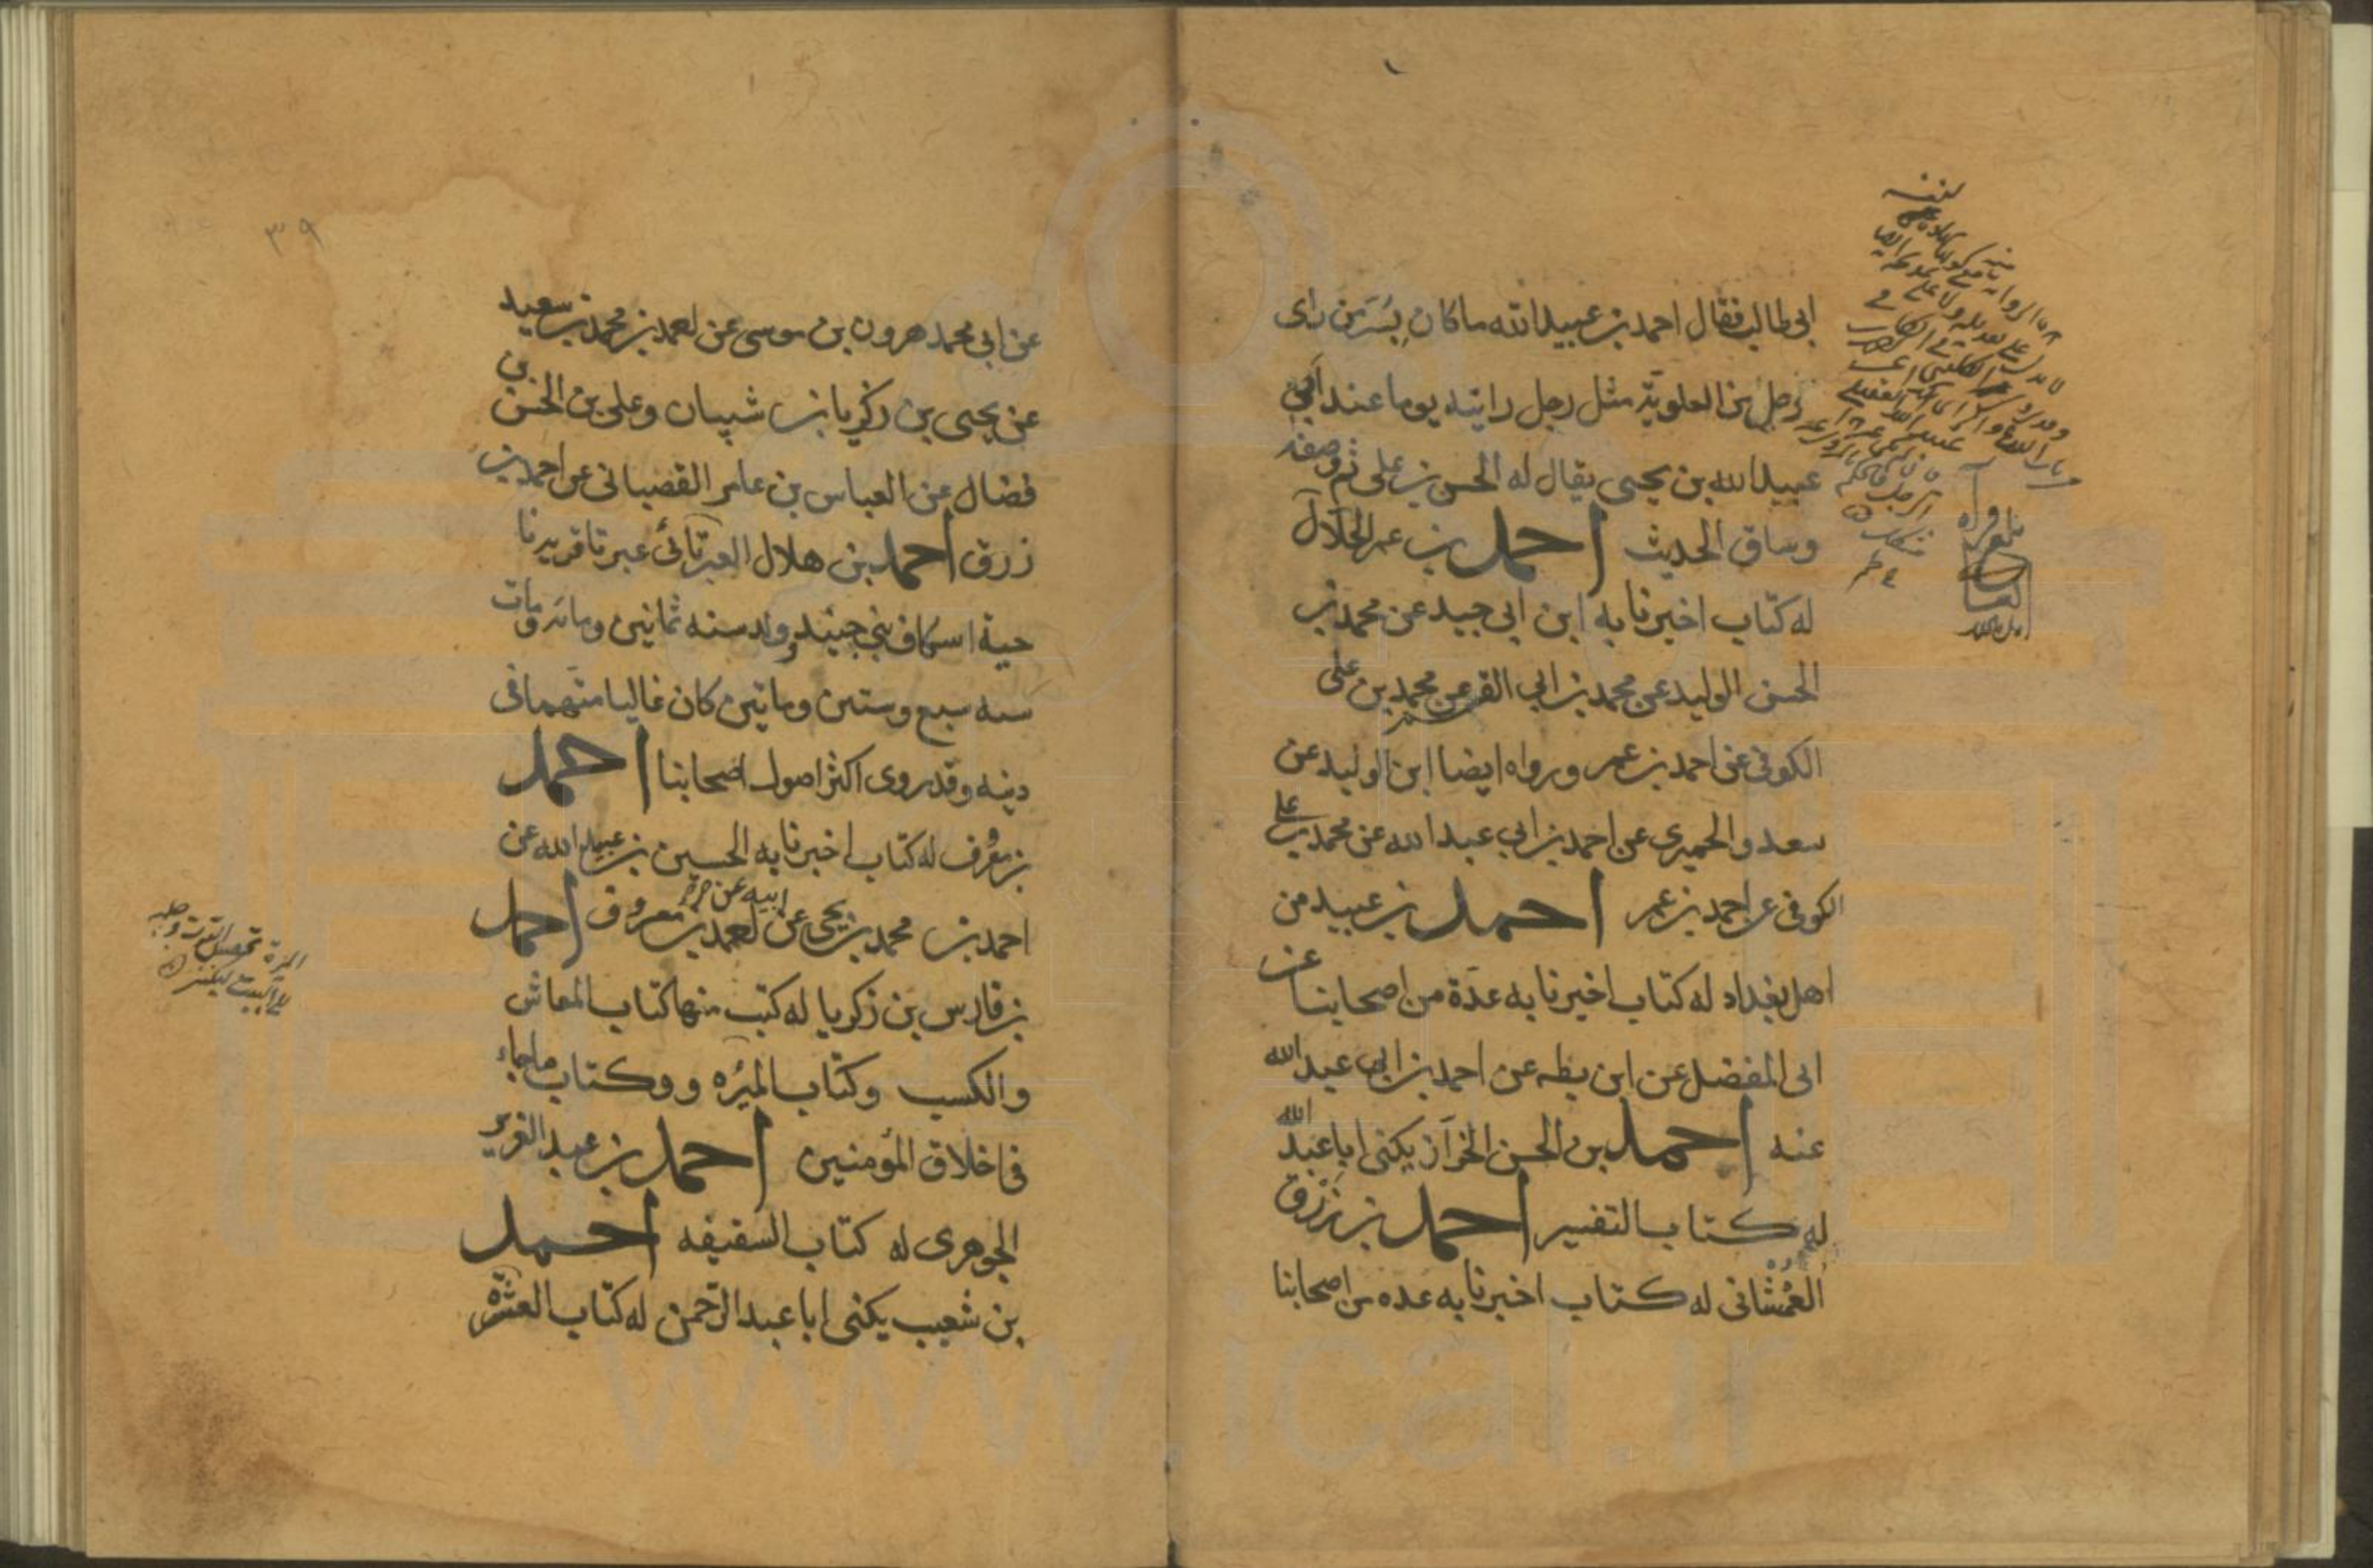 ابى طالب فقال احمد بن عبيد الله ما كان بسر من راى
رجل من العلوية مثل رجل رايته يوما عند ابى
عبيد الله بن يحيى يقال له الحسن بن على ثم وصفه
وساق الحديث احمد بن عمر الحلال
له كتاب اخبرنا به ابن ابى جيد عن محمد بن
الحسن الوليد عن محمد بن ابى القسم عن محمد بن على
الكوفى عن احمد بن عمر ورواه ايضا ابن الوليد عن
سعد والحميرى عن احمد بن ابى عبد الله عن محمد بن على
الكوفى عن احمد بن عمر احمد بن عبيد من
اهل بغداد له كتاب اخبرنا به عدة من اصحابنا عن
ابى المفضل عن ابن بطه عن احمد بن ابى عبد الله
عنه احمد بن الحسن الخزاز يكنى ابا عبد الله
له كتاب التفسير احمد بن رزق
الغمشانى له كتاب اخبرنا به عده من اصحابنا
٣٩
عن ابى محمد هرون بن موسى عن احمد بن محمد بن سعيد
عن يحيى بن زكريا بن شيبان وعلى بن الحسن بن
فضال عن العباس بن عامر القصبانى عن احمد بن
زرق احمد بن هلال العبرتائى عبرتا قرية بنا
حية اسكاف بنى جنيد ولد سنه ثمانين ومائة ومات
سنه سبع وستين وماتين كان غاليا متهما فى
دينه وقد روى اكثر اصول اصحابنا احمد
بن معروف له كتاب اخبرنا به الحسين بن عبيد الله عن
احمد بن محمد بن يحيى عن ابيه عن احمد بن معروف احمد
بن فارس بن زكريا له كتب منها كتاب المعاش
والكسب وكتاب الميرة و وكتاب ما جاء
فى اخلاق المؤمنين احمد بن عبد العزيز
الجوهرى له كتاب السقيفه احمد
بن شعيب يكنى ابا عبد الرحمن له كتاب العشرة
www.ical.ir